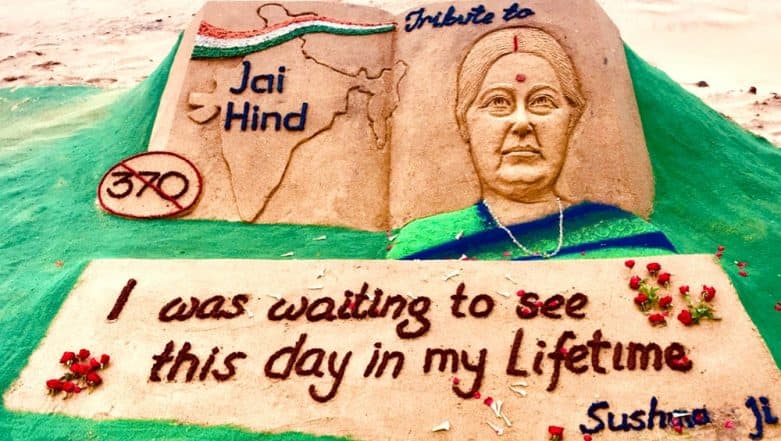 Tribute to
Jai
Hind
370
I was waiting to see
this day in my Lifetime
Sushma Ji